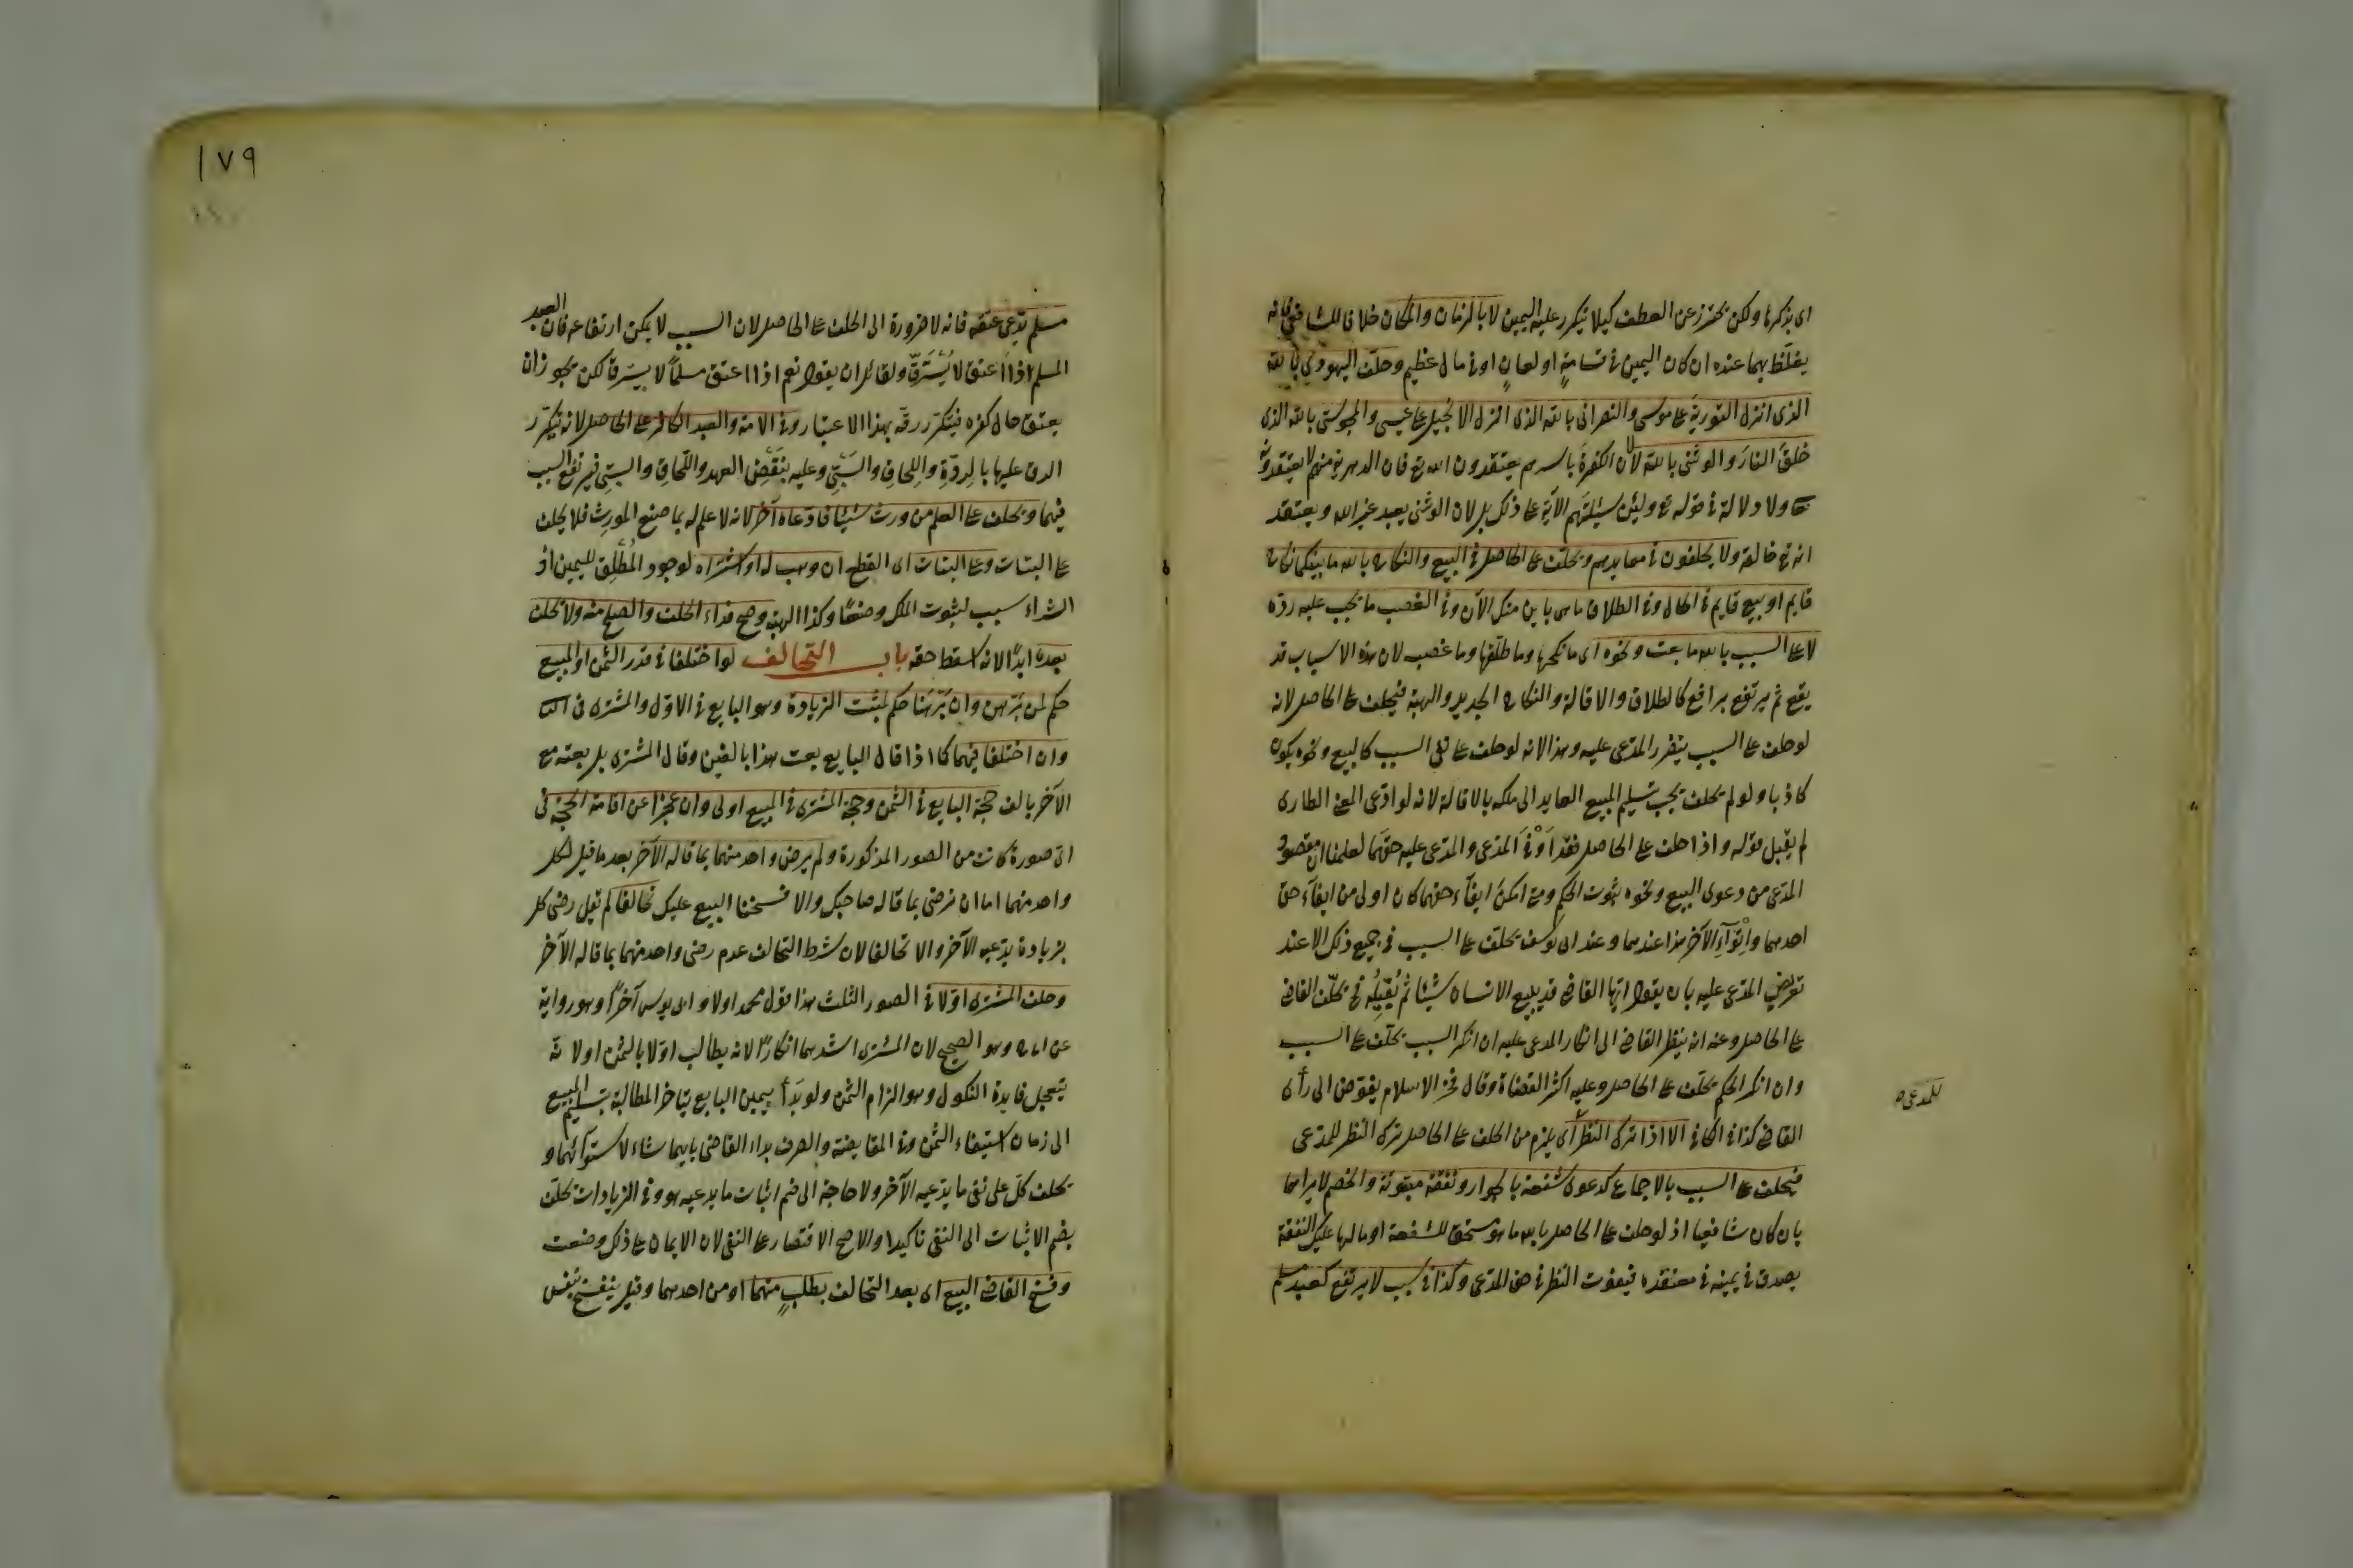 اى يذكرها ولكن يحترز عن العطف كيلا يتكرر عليه اليمين لا بالزمان والمكان خلافا للشافعى فانه
يغلّظ بهما عنده ان كان اليمين فى قسامةٍ او لعانٍ او فى مال عظيم وحلف اليهودى بالله
الذى انزل التورية على موسى والنصرانى بالله الذى انزل الانجيل على عيسى والمجوسى بالله الذى
خلق النار والوثنى بالله لان الكفرة باسرهم يعتقدون الله تع فان الدهرية منهم لا يعتقدونه
ولا دلالة فى قوله تع ولئن سئلتهم الآية على ذلك بل لان الوثنى يعبد غير الله ويعتقد
انه تع خالقه ولا يحلفون فى معابدهم ويحلف على الحاصل فى البيع والنكاح بالله ما بينكما نكاح
قايم او بيع قايم فى الحال وفى الطلاق ما هى باين منك الآن وفى الغصب ما يجب عليه ردّه
لا على السبب بالله ما بعت ونحوه اى ما نكحها وما طلّقها وما غصب لان هذه الاسباب قد
يقع ثم يرتفع برافع كالطلاق والاقالة والنكاح الجديد والهبة فيحلف على الحاصل لانه
لو حلف على السبب يتضرر المدّعى عليه وهذا لانه لو حلف على نفى السبب كالبيع ونحوه يكون
كاذبا ولو لم يحلف يجب تسليم المبيع العايد الى ملكه بالاقالة لانه لو ادّعى المعنى الطارى
لم يقبل قوله واذا حلف على الحاصل فقد اوفى المدّعى والمدّعى عليه حقّهما لعلمنا ان مقصود
المدّعى من دعوى البيع ونحوه ثبوت الحكم ومتى امكن ايفآء حقهما كان اولى من ايفآء حق
احدهما واتوآء الآخر هذا عندهما وعند ابى يوسف يحلف على السبب فى جميع ذلك الا عند
تعريض المدّعى عليه بان يقول ايها القاضى قد يبيع الانسان شيئا ثم يُقيلُه فح يحلّف القاضى
على الحاصل وعنه انه ينظر القاضى الى انكار المدعى عليه ان انكر السبب يحلّف على السبب
وان انكر الحكم يحلّف على الحاصل وعليه اكثر القضاة وقال فخر الاسلام يفوّض الى رأى
للمدّعى
القاضى كذا فى الكافى الا اذا ترك النظر اى يلزم من الحلف على الحاصل ترك النظر للمدّعى
فيحلف على السبب بالاجماع كدعوى شفعة بالجوار ونفقة مبتوتة والخصم لا يراهما
بان كان شافعيا اذ لو حلف على الحاصل بالله ما هو مستحق للشفعة او ما لها عليك النفقة
يصدق فى يمينه فى معتقده فيفوت النظر فى حق المدّعى وكذا فى سبب لا يرتفع كعبد مسلم
١٧٩
مسلم يدّعى عتقه فانه لا ضرورة الى الحلف على الحاصل لان السبب لا يمكن ارتفاعه فان العبد
المسلم اذا اعتق لا يُسترقّ ولقائل ان يقول نعم اذا اعتق مسلماً لا يسترق لكن يجوز ان
يعتق حال كفره فيتكرّر رقّه بهذا الاعتبار وفى الامة والعبد الكافر على الحاصل لانه يتكرّر
الرق عليها بالرِدّةِ واللحاق والسَبْىِ وعليه بنقض العهد واللحاق والسبى فيرتفع السبب
فيهما ويحلف على العلم من ورث شيئا فادّعاه آخر لانه لا علم له بما صنع المورث فلا يحلف
على البتات وعلى البتات اى القطع ان وهب له او اشتراه لوجود المُطْلِق لليمين اذ
الشراء سبب لثبوت الملك وضعًا وكذا الهبة وصح فداء الحلف والصلح منه ولا يحلف
بعده ابداً لانه اسقط حقه باب التحالف لو اختلفا فى قدر الثمن او المبيع
حكم لمن بَرهن وان برهنا حكم لمثبت الزيادة وهو البايع فى الاوّل والمشترى فى الثانى
وان اختلفا فيهما كما اذا قال البايع بعت هذا بالفين وقال المشترى بل بعته مع
الآخر بالف حجة البايع فى الثمن وحجة المشترى فى المبيع اولى وان عجزا عن اقامة الحجة فى
اىّ صورة كانت من الصور المذكورة ولم يرض واحد منهما بما قاله الآخر بعد ما قيل لكل
واحد منهما اما ان ترضى بما قاله صاحبك والا فسخنا البيع عليك تحالفا لم يقل رضى كل
بزيادة يدّعيه الآخر والا تحالفا لان شرط التحالف عدم رضى واحد منهما بما قاله الآخر
وحلف المشترى اوّلا فى الصور الثلث هذا قول محمد اولا وابى يوسف آخراً وهو رواية
عن ابى ح وهو الصحيح لان المشترى اشدهما انكارًا لانه يطالب اوّلا بالثمن اولا نه
يتعجل فايدة النكول وهو الزام الثمن ولو بَدأ بيمين البايع يتأخر المطالبة بتسليم المبيع
الى زمان استيفاء الثمن وفى المقايضة والصرف بداء القاضى بايهما شاء لاستوآئهما و
يحلف كلّ على نفى ما يدّعيه الآخر ولا حاجة الى ضم اثبات ما يدعيه هو وفى الزيادات يحلّف
بضم الاثبات الى النفى تأكيدا والاصح الاقتصار على النفى لان الايمان على ذلك وضعت
وفسخ القاضى البيع اى بعد التحالف بطلبٍ منهما او من احدهما وقيل ينفسخ بنفس